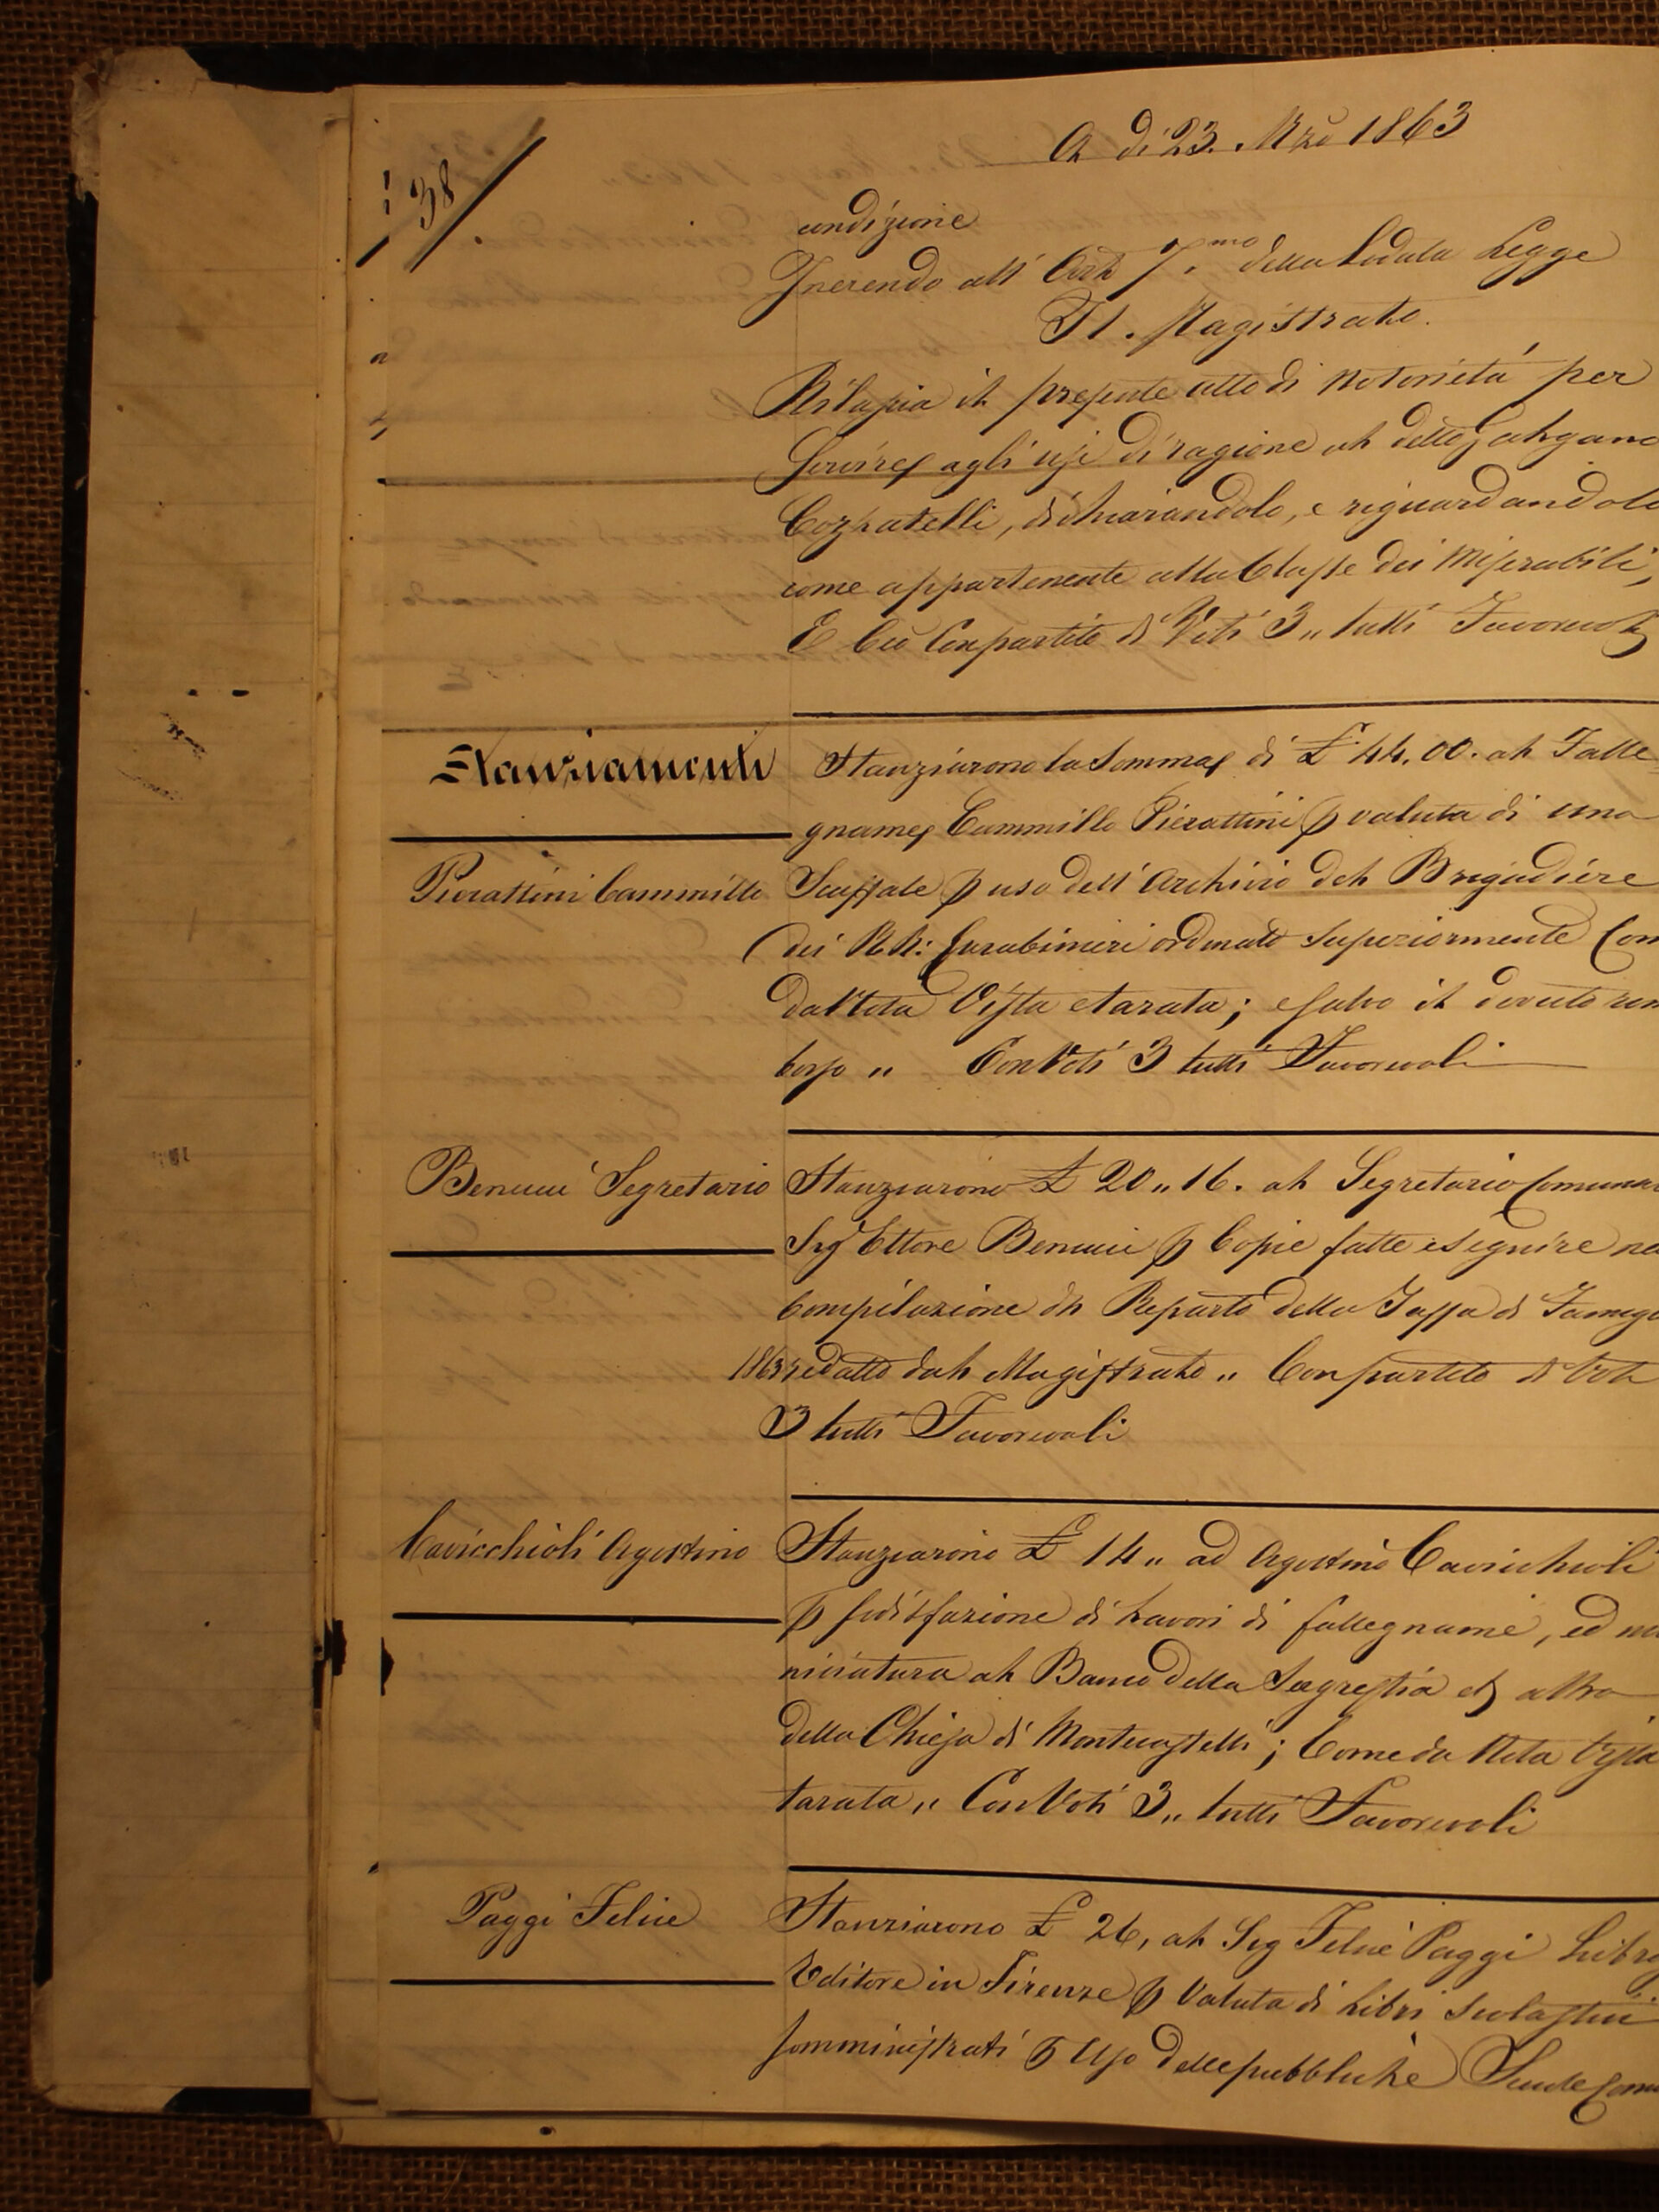 38
A dì 23. Mzo 1863
condizione
Inerendo all' Art 7.mo della Lodata Legge
Il. Magistrato.
Rilascia il presente atto di Notorietà per
Servire agli usi di ragione al detto Galgano
dichiarandolo, e riguardandolo
come appartenente alla Classe dei Miserabili,
E Ciò Con partito di Voti 3,, tutti Favorevoli
Stanziamenti
Stanziarono la Somma di £ 44.00. al Falle=
gname Cammillo Pierattini p valuta di uno
Pierattini Cammillo
Scaffale p uso dell' Archivio del Brigadiere
dei RR: Carabinieri ordinato Superiormente Com
dalla Vista e tarata; e salvo il dovuto rim
borso ,, Con Voti 3 tutti Favorevoli
Benucci Segretario
Stanziarono £ 20,,16. al Segretario Comuna
Sig Ettore Benucci p Copie fatte eseguire ne
Compilazione del Reparto della Tassa di Famigl
1863 redatto dal Magistrato ,, Con partito di Voti
3 tutti Favorevoli
Cavicchioli Agostino
Stanziarono £ 14,, ad Agostino Cavichioli
p sodisfazione di Lavori di fallegname, ed
al Banco della Sagrestia ed altro
della Chiesa di Montecastelli; Come da Nota Vista
tarata,, Con Voti 3,, tutti Favorevoli
Paggi Felice
Stanziarono £ 26, al Sig Felice Paggi Libr
Editore in Firenze p Valuta di Libri Scolastici
somministrati p Uso delle pubbliche Scuole Comu